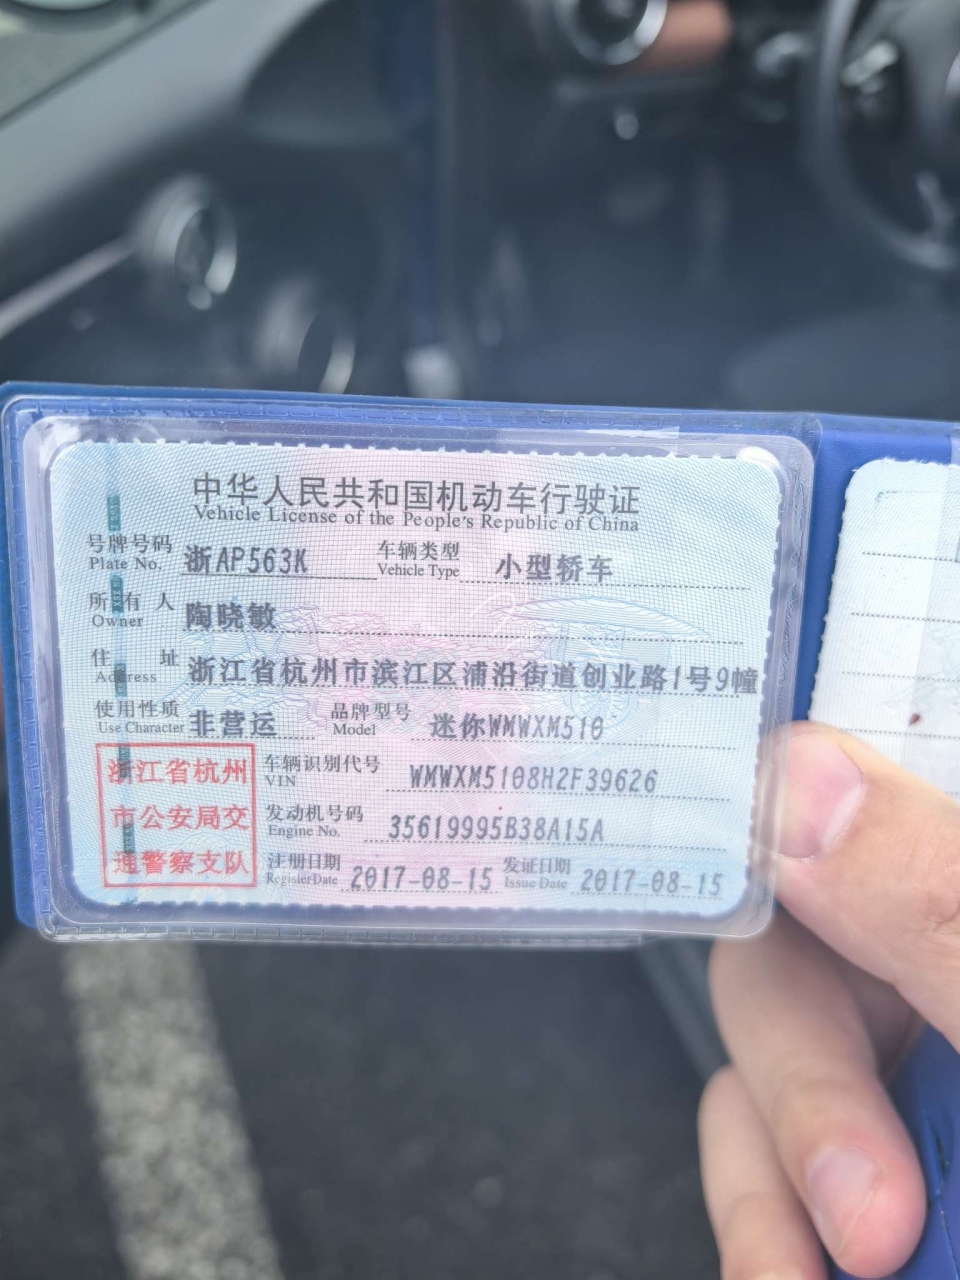 中华人民共和国机动车行驶证
Vehicle License of the People's Republic of China
号牌号码 浙AP563K 车辆类型 小型轿车
Plate No. Vehicle Type
所有人 陶晓敏
Owner
住址 浙江省杭州市滨江区浦沿街道创业路1号9幢
Address
使用性质 非营运 品牌型号 迷你WMWXM510
Use Character Model
浙江省杭州
市公安局交
通警察支队
车辆识别代号 WMWXM5108H2F39626
VIN
发动机号码 35619995B38A15A
Engine No.
注册日期 2017-08-15 发证日期 2017-08-15
Register Date Issue Date